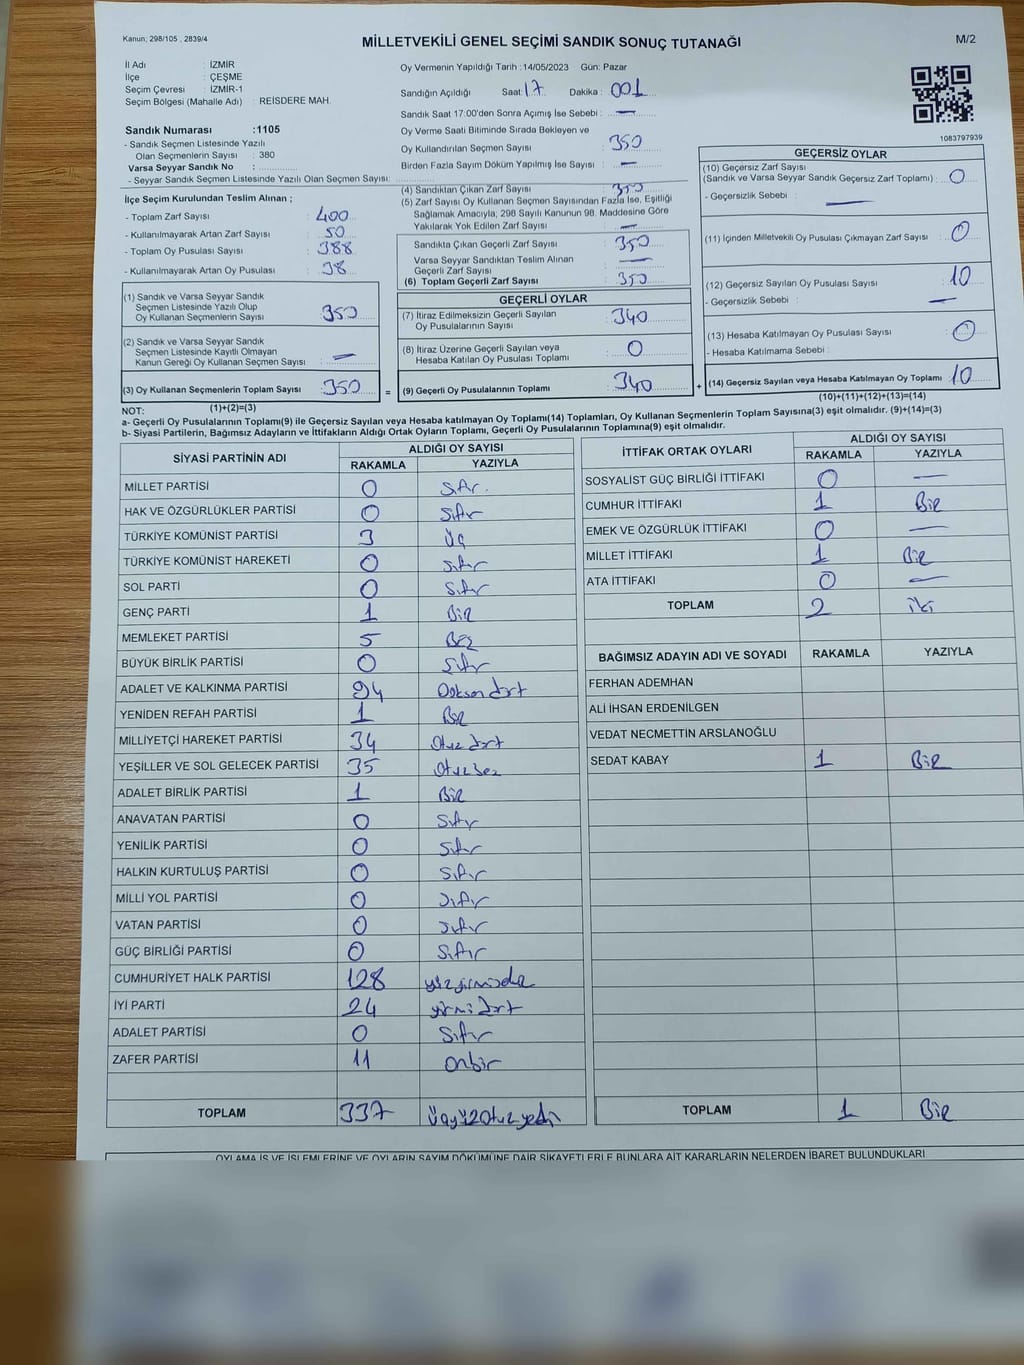 Kanun; 298/105 , 2839/4
MİLLETVEKİLİ GENEL SEÇİMİ SANDIK SONUÇ TUTANAĞI
M/2
İl Adı : İZMİR
İlçe : ÇEŞME
Seçim Çevresi : İZMİR-1
Seçim Bölgesi (Mahalle Adı) : REİSDERE MAH.
Sandık Numarası :1105
- Sandık Seçmen Listesinde Yazılı
Olan Seçmenlerin Sayısı : 380
Varsa Seyyar Sandık No :
- Seyyar Sandık Seçmen Listesinde Yazılı Olan Seçmen Sayısı:
Oy Vermenin Yapıldığı Tarih :14/05/2023 Gün: Pazar
Sandığın Açıldığı Saat: 17 Dakika : 001
Sandık Saat 17:00'den Sonra Açımış İse Sebebi : —
Oy Verme Saati Bitiminde Sırada Bekleyen ve
Oy Kullandırılan Seçmen Sayısı : 350
Birden Fazla Sayım Döküm Yapılmış İse Sayısı : —
1083797939
İlçe Seçim Kurulundan Teslim Alınan ;
- Toplam Zarf Sayısı : 400
- Kullanılmayarak Artan Zarf Sayısı : 50
- Toplam Oy Pusulası Sayısı : 388
- Kullanılmayarak Artan Oy Pusulası : 38
(1) Sandık ve Varsa Seyyar Sandık
Seçmen Listesinde Yazılı Olup
Oy Kullanan Seçmenlerin Sayısı : 350
(2) Sandık ve Varsa Seyyar Sandık
Seçmen Listesinde Kayıtlı Olmayan
Kanun Gereği Oy Kullanan Seçmen Sayısı : —
(3) Oy Kullanan Seçmenlerin Toplam Sayısı : 350 =
(1)+(2)=(3)
(4) Sandıktan Çıkan Zarf Sayısı : 350
(5) Zarf Sayısı Oy Kullanan Seçmen Sayısından Fazla İse, Eşitliği
Sağlamak Amacıyla, 298 Sayılı Kanunun 98. Maddesine Göre
Yakılarak Yok Edilen Zarf Sayısı : —
Sandıkta Çıkan Geçerli Zarf Sayısı : 350
Varsa Seyyar Sandıktan Teslim Alınan
Geçerli Zarf Sayısı : —
(6) Toplam Geçerli Zarf Sayısı : 350
GEÇERLİ OYLAR
(7) İtiraz Edilmeksizin Geçerli Sayılan
Oy Pusulalarının Sayısı : 340
(8) İtiraz Üzerine Geçerli Sayılan veya
Hesaba Katılan Oy Pusulası Toplamı : 0
(9) Geçerli Oy Pusulalarının Toplamı : 340 +
GEÇERSİZ OYLAR
(10) Geçersiz Zarf Sayısı
(Sandık ve Varsa Seyyar Sandık Geçersiz Zarf Toplamı) : 0
- Geçersizlik Sebebi : —
(11) İçinden Milletvekili Oy Pusulası Çıkmayan Zarf Sayısı : 0
(12) Geçersiz Sayılan Oy Pusulası Sayısı : 10
- Geçersizlik Sebebi : —
(13) Hesaba Katılmayan Oy Pusulası Sayısı : 0
- Hesaba Katılmama Sebebi :
(14) Geçersiz Sayılan veya Hesaba Katılmayan Oy Toplamı : 10
(10)+(11)+(12)+(13)=(14)
NOT:
a- Geçerli Oy Pusulalarının Toplamı(9) ile Geçersiz Sayılan veya Hesaba katılmayan Oy Toplamı(14) Toplamları, Oy Kullanan Seçmenlerin Toplam Sayısına(3) eşit olmalıdır. (9)+(14)=(3)
b- Siyasi Partilerin, Bağımsız Adayların ve İttifakların Aldığı Ortak Oyların Toplamı, Geçerli Oy Pusulalarının Toplamına(9) eşit olmalıdır.
SİYASİ PARTİNİN ADI ALDIĞI OY SAYISI
RAKAMLA YAZIYLA
MİLLET PARTİSİ 0 Sıfır
HAK VE ÖZGÜRLÜKLER PARTİSİ 0 Sıfır
TÜRKİYE KOMÜNİST PARTİSİ 3 üç
TÜRKİYE KOMÜNİST HAREKETİ 0 Sıfır
SOL PARTİ 0 Sıfır
GENÇ PARTİ 1 Bir
MEMLEKET PARTİSİ 5 Beş
BÜYÜK BİRLİK PARTİSİ 0 Sıfır
ADALET VE KALKINMA PARTİSİ 94 Doksan dört
YENİDEN REFAH PARTİSİ 1 Bir
MİLLİYETÇİ HAREKET PARTİSİ 34 Otuz dört
YEŞİLLER VE SOL GELECEK PARTİSİ 35 Otuzbeş
ADALET BİRLİK PARTİSİ 1 Bir
ANAVATAN PARTİSİ 0 Sıfır
YENİLİK PARTİSİ 0 Sıfır
HALKIN KURTULUŞ PARTİSİ 0 Sıfır
MİLLİ YOL PARTİSİ 0 Sıfır
VATAN PARTİSİ 0 Sıfır
GÜÇ BİRLİĞİ PARTİSİ 0 Sıfır
CUMHURİYET HALK PARTİSİ 128
İYİ PARTİ 24 yirmi dört
ADALET PARTİSİ 0 Sıfır
ZAFER PARTİSİ 11 onbir
TOPLAM 337 üçyüzotuzyedi
İTTİFAK ORTAK OYLARI ALDIĞI OY SAYISI
RAKAMLA YAZIYLA
SOSYALİST GÜÇ BİRLİĞİ İTTİFAKI 0 —
CUMHUR İTTİFAKI 1 Bir
EMEK VE ÖZGÜRLÜK İTTİFAKI 0 —
MİLLET İTTİFAKI 1 Bir
ATA İTTİFAKI 0 —
TOPLAM 2 iki
BAĞIMSIZ ADAYIN ADI VE SOYADI RAKAMLA YAZIYLA
FERHAN ADEMHAN
ALİ İHSAN ERDENİLGEN
VEDAT NECMETTİN ARSLANOĞLU
SEDAT KABAY 1 Bir
TOPLAM 1 Bir
OYLAMA İŞ VE İŞLEMLERİNE VE OYLARIN SAYIM DÖKÜMÜNE DAİR ŞİKAYETLERLE BUNLARA AİT KARARLARIN NELERDEN İBARET BULUNDUKLARI